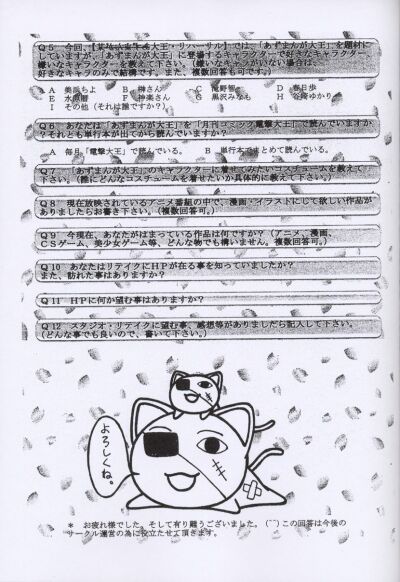 Q5 今回、【某放課後大王・リハーサル】では、「あずまんが大王」を題材に
していますが、「あずまんが大王」に登場するキャラクターで好きなキャラクター、
嫌いなキャラクターを教えて下さい。(嫌いなキャラがいない場合は、
好きなキャラのみで結構です。また、複数回答も可です。)
A 美浜ちよ B 榊さん C 滝野智 D 春日歩
E 水原暦 F 神楽さん G 黒沢みなも H 谷崎ゆかり
I その他(それは誰ですか?)
Q6 あなたは「あずまんが大王」を「月刊コミック電撃大王」で読んでいますか
?それとも単行本が出てから読んでいますか?
A 毎月「電撃大王」で読んでいる。 B 単行本でまとめて読んでいる。
Q7 「あずまんが大王」のキャラクターに着せてみたいコスチュームを教えて
下さい。(誰にどんなコスチュームを着せたいか具体的に教えて下さい。)
Q8 現在放映されているアニメ番組の中で、漫画・イラストにして欲しい作品が
ありましたらお書き下さい。(複数回答可。)
Q9 今現在、あなたがはまっている作品は何ですか?(アニメ、漫画、
CSゲーム、美少女ゲーム等、どんな物でも構いません。複数回答可。)
Q10 あなたはリテイクにHPが在る事を知っていましたか?
また、訪れた事はありますか?
Q11 HPに何か望む事はありますか?
Q12 スタジオ・リテイクに望む事、感想等がありましたら記入して下さい。
(どんな事でも良いので、書いて下さい。)
よろしくね。
* お疲れ様でした。そして有り難うございました。(^^)この回答は今後の
サークル運営の為に役立たせて頂きます。